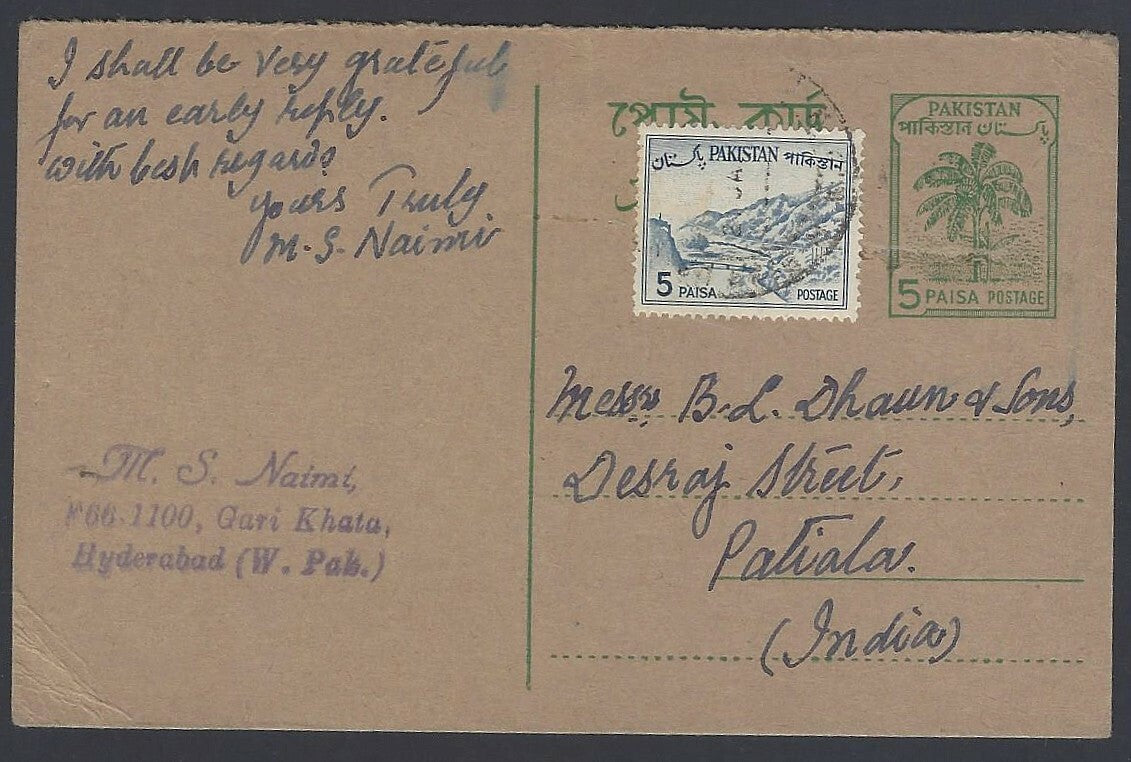 I shall be very grateful
for an early reply.
with best regards
yours Truly
M. S. Naimi
পোস্ট কার্ড
PAKISTAN
পাকিস্তান پاکستان
5 PAISA POSTAGE
پاکستان PAKISTAN পাকিস্তান
5 PAISA POSTAGE
Messrs B. L. Dhaun & Sons,
Desraj Street,
Patiala.
(India)
M. S. Naimi,
F66-1100, Gari Khata,
Hyderabad (W. Pak.)